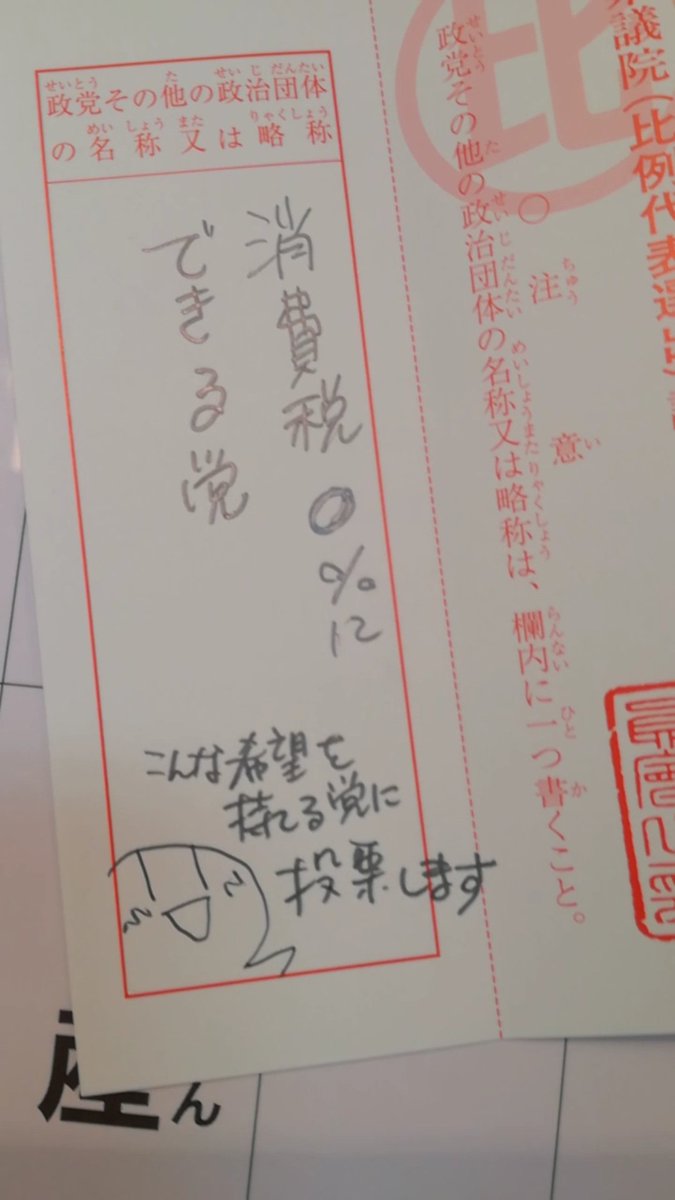 政党その他の政治団体
の名称又は略称
消費税0%に
できる党
こんな希望を
持てる党に
投票します
議院(比例代表選出)
○注意
政党その他の政治団体の名称又は略称は、欄内に一つ書くこと。
比
産ん